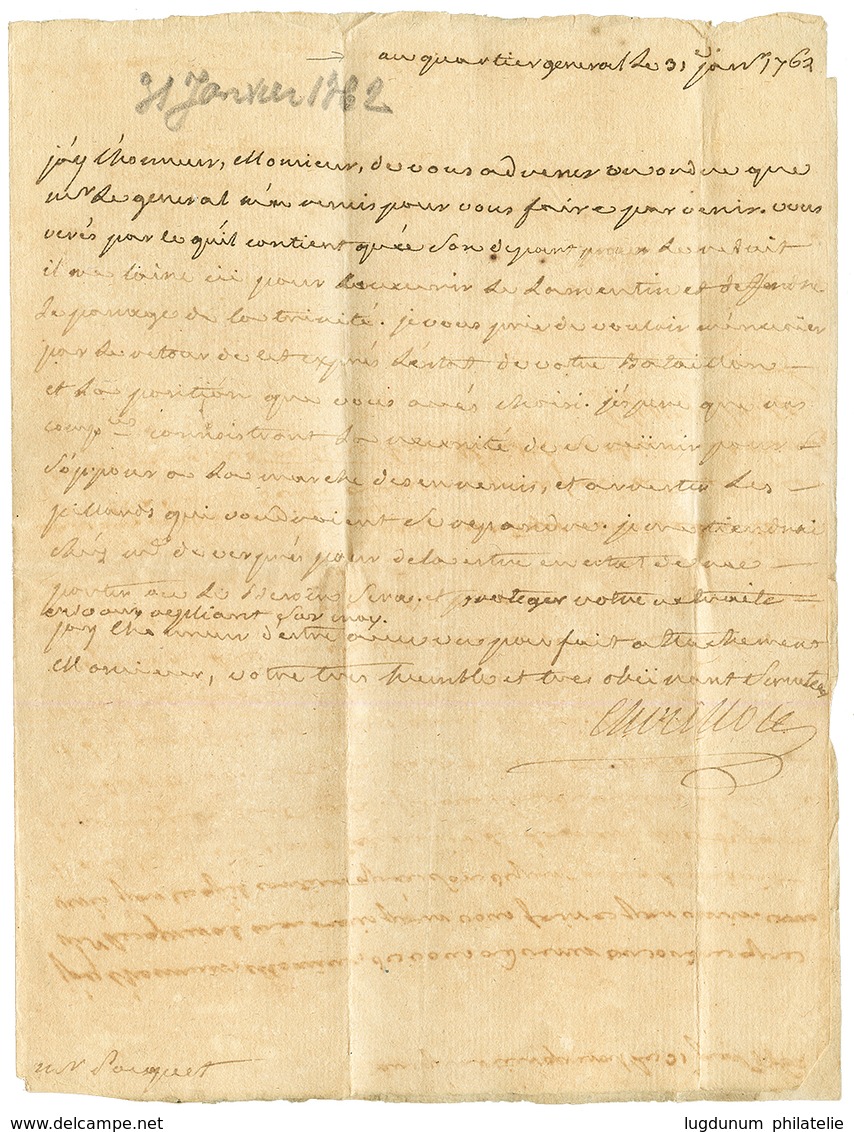 au quartier general le 31 janvr 1762
31 Janvier 1762
j'ay l'honneur, Monsieur, de vous adresser un ordre que
mr le general m'a remis pour vous faire parvenir. vous
verés par le qu'il contient qu'ée son depart pour le reduit
il me laisse ici pour le lamentin et deffendre
le passage de la trinité. je vous prie de vouloir m'envoier
par le retour de cet exprés l'estat de votre Bataillon
et la position que vous avés choisi. j'espere que vos
compies connoistront la necessité de se reünir pour
s'oppozer a la marche des ennemis, et arrester les
pillards qui voudroient se repandre. je me tiendrai
chéz md de verprés pour de la estre en estat de me
porter ou le besoin sera. et proteger votre retraite
en vous repliant sur moy.
j'ay l'honneur d'estre avec un parfait attachement
Monsieur, votre tres humble et tres obeïssant Serviteur
mr Pocquet
www.delcampe.net
lugdunum philatelie